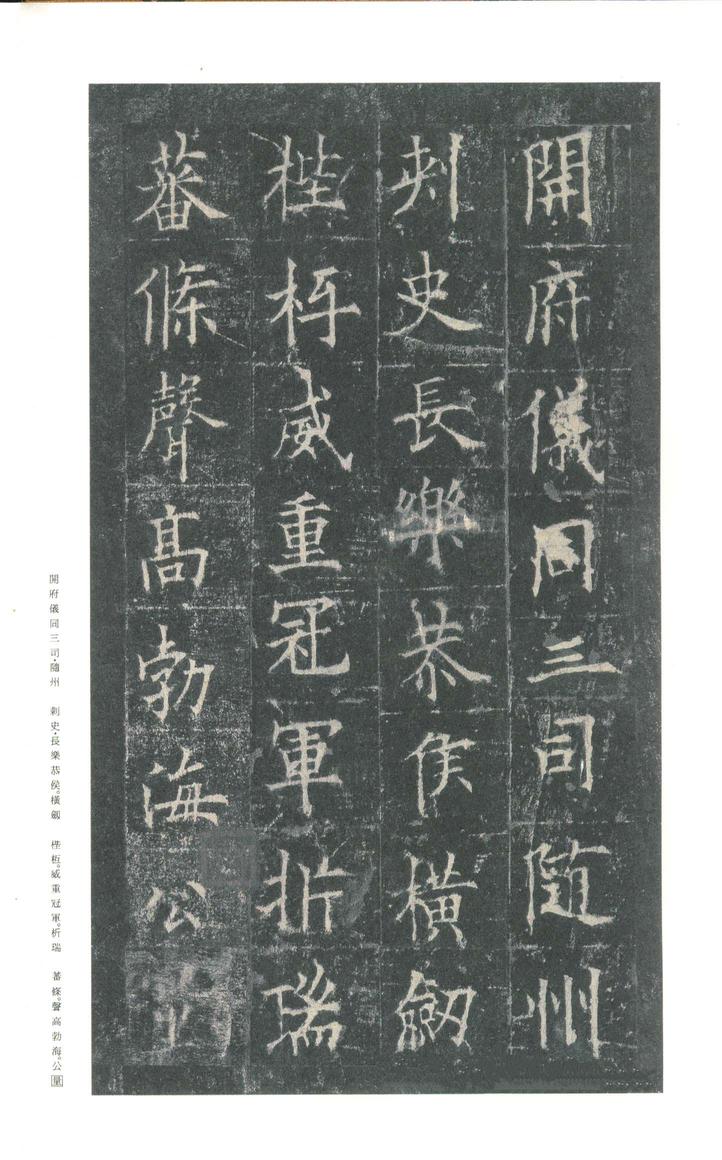 開府儀同三司隨州
刺史長樂恭侯橫劒
梐枑威重冠軍折瑞
蕃條聲高勃海公
開府儀同三司·隨州　刺史·長樂恭侯。橫劒　梐枑。威重冠軍。析瑞　蕃條。聲高勃海。公量